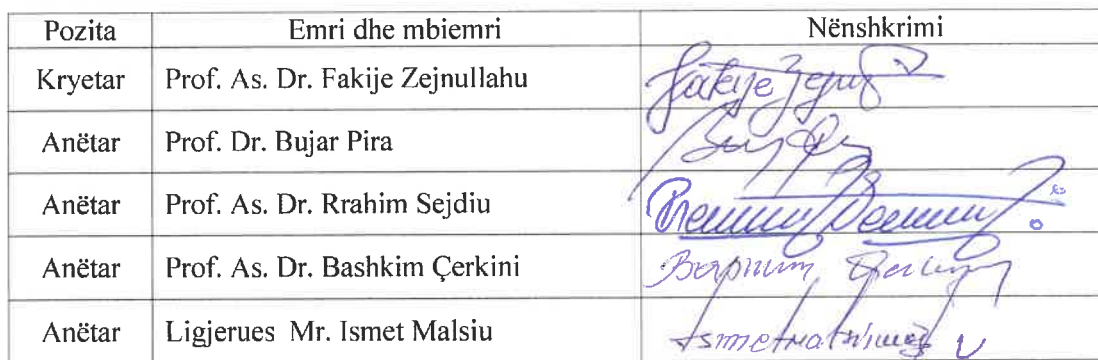 Pozita Emri dhe mbiemri Nënshkrimi
Kryetar Prof. As. Dr. Fakije Zejnullahu Fakije
Anëtar Prof. Dr. Bujar Pira
Anëtar Prof. As. Dr. Rrahim Sejdiu
Anëtar Prof. As. Dr. Bashkim Çerkini
Anëtar Ligjerues Mr. Ismet Malsiu